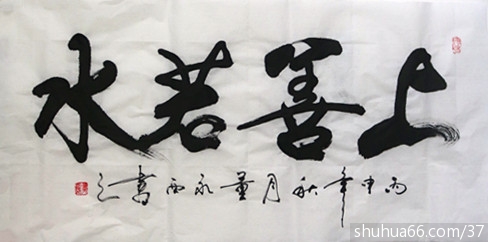 上善若水
丙申年秋月董永西書之
shuhua66.com/37